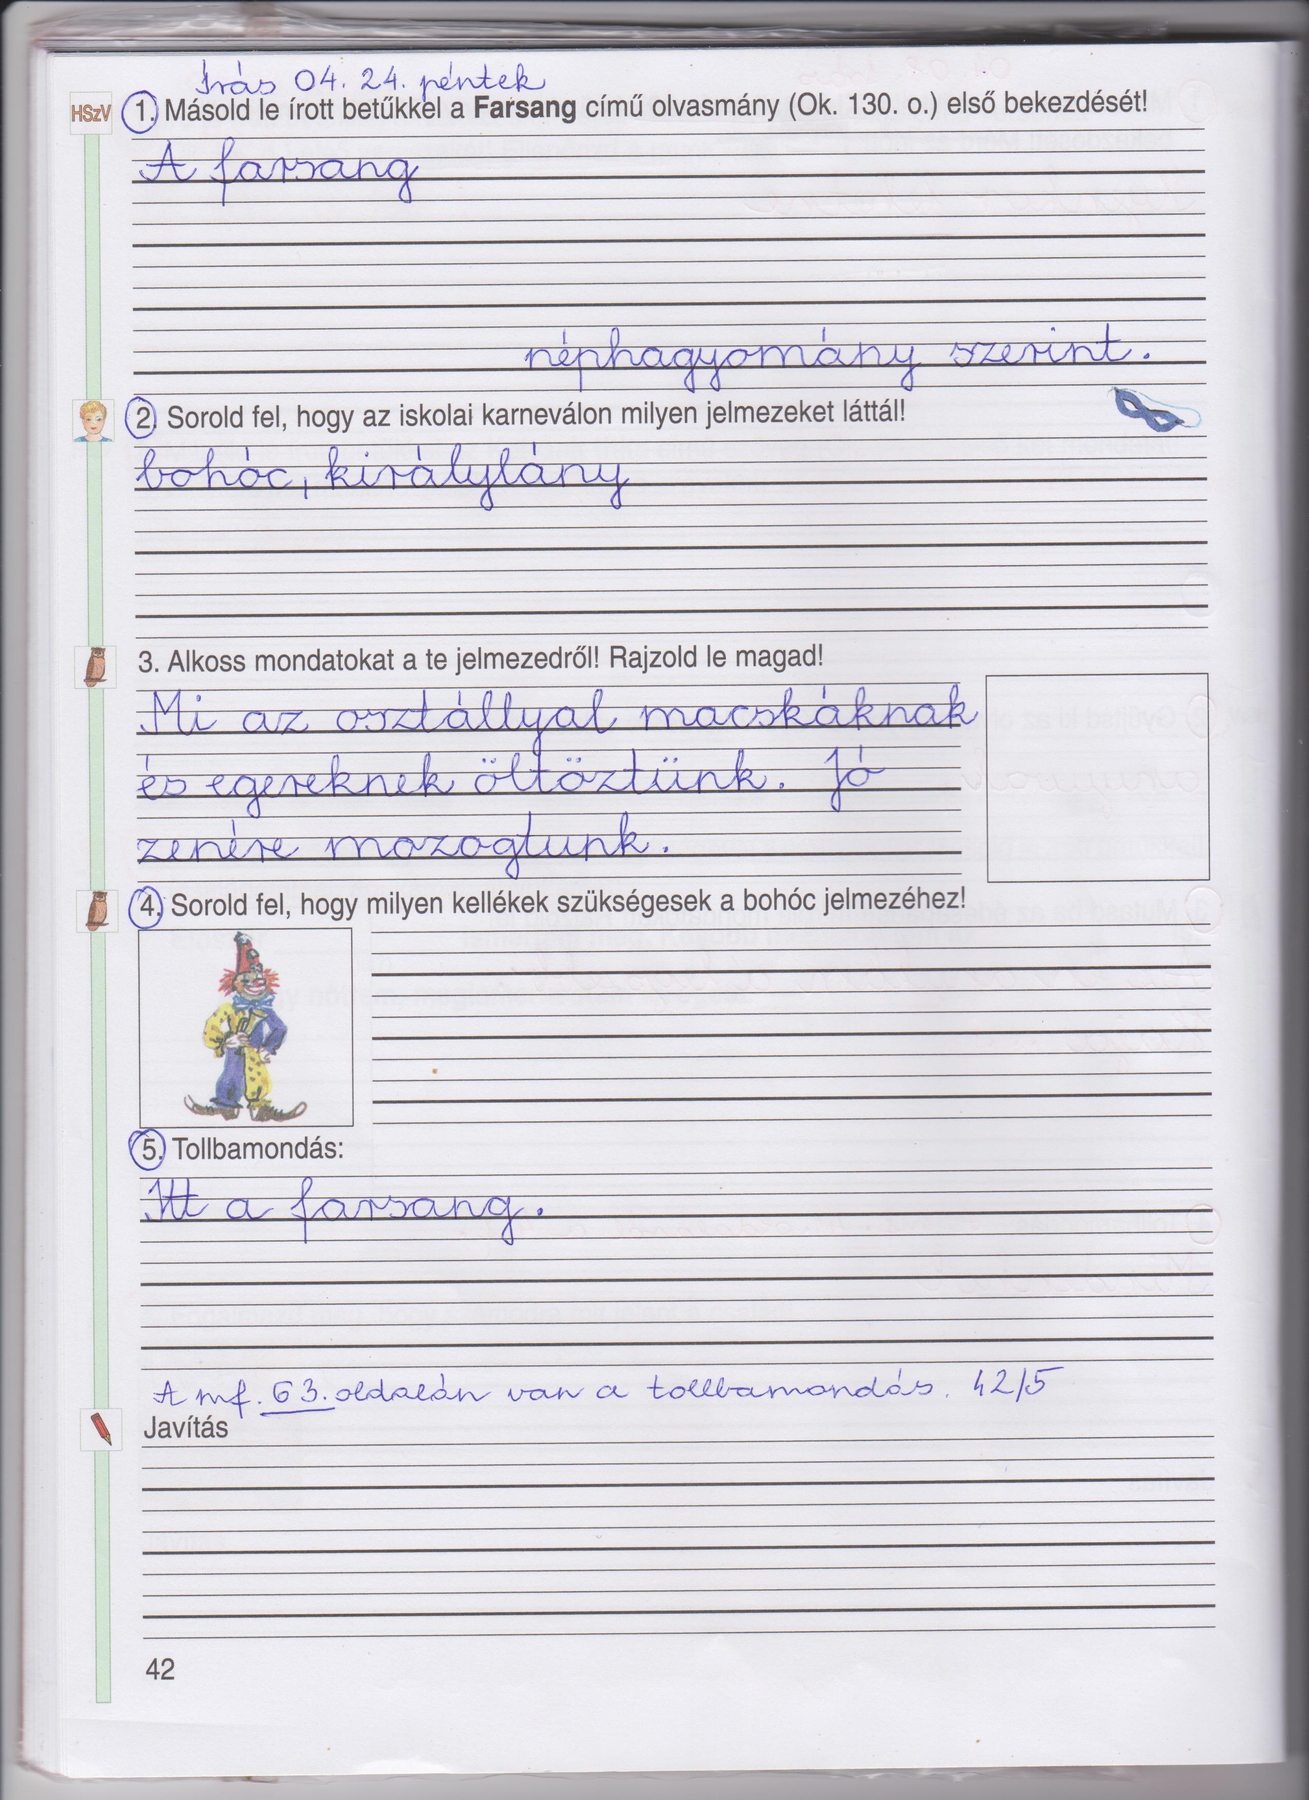 Írás 04. 24. péntek
HSzV 1. Másold le írott betűkkel a Farsang című olvasmány (Ok. 130. o.) első bekezdését!
A farsang
néphagyomány szerint.
2. Sorold fel, hogy az iskolai karneválon milyen jelmezeket láttál!
bohóc, királylány
3. Alkoss mondatokat a te jelmezedről! Rajzold le magad!
Mi az osztállyal macskáknak
és egereknek öltöztünk. Jó
zenére mozogtunk.
4. Sorold fel, hogy milyen kellékek szükségesek a bohóc jelmezéhez!
5. Tollbamondás:
Itt a farsang.
A mf. 63. oldalán van a tollbamondás. 42/5
Javítás
42